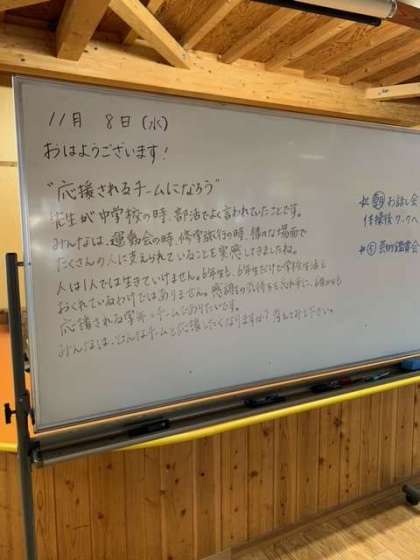 11月 8日(水)
おはようございます!
"応援されるチームになろう"
先生が中学校の時、部活でよく言われていたことです。
みんなは、運動会の時、修学旅行の時、様々な場面で
たくさんの人に支えられていることを実感してきましたね。
人は1人では生きていけません。6年生も、6年生だけで学校生活を
おくれているわけではありません。感謝の気持ちを忘れずに、6年生も
応援される学年・チームでありたいです。
みんなは、どんなチームを応援したくなりますか?考えてみて下さい。
☆ 朝 お話し会
体操後ワークへ